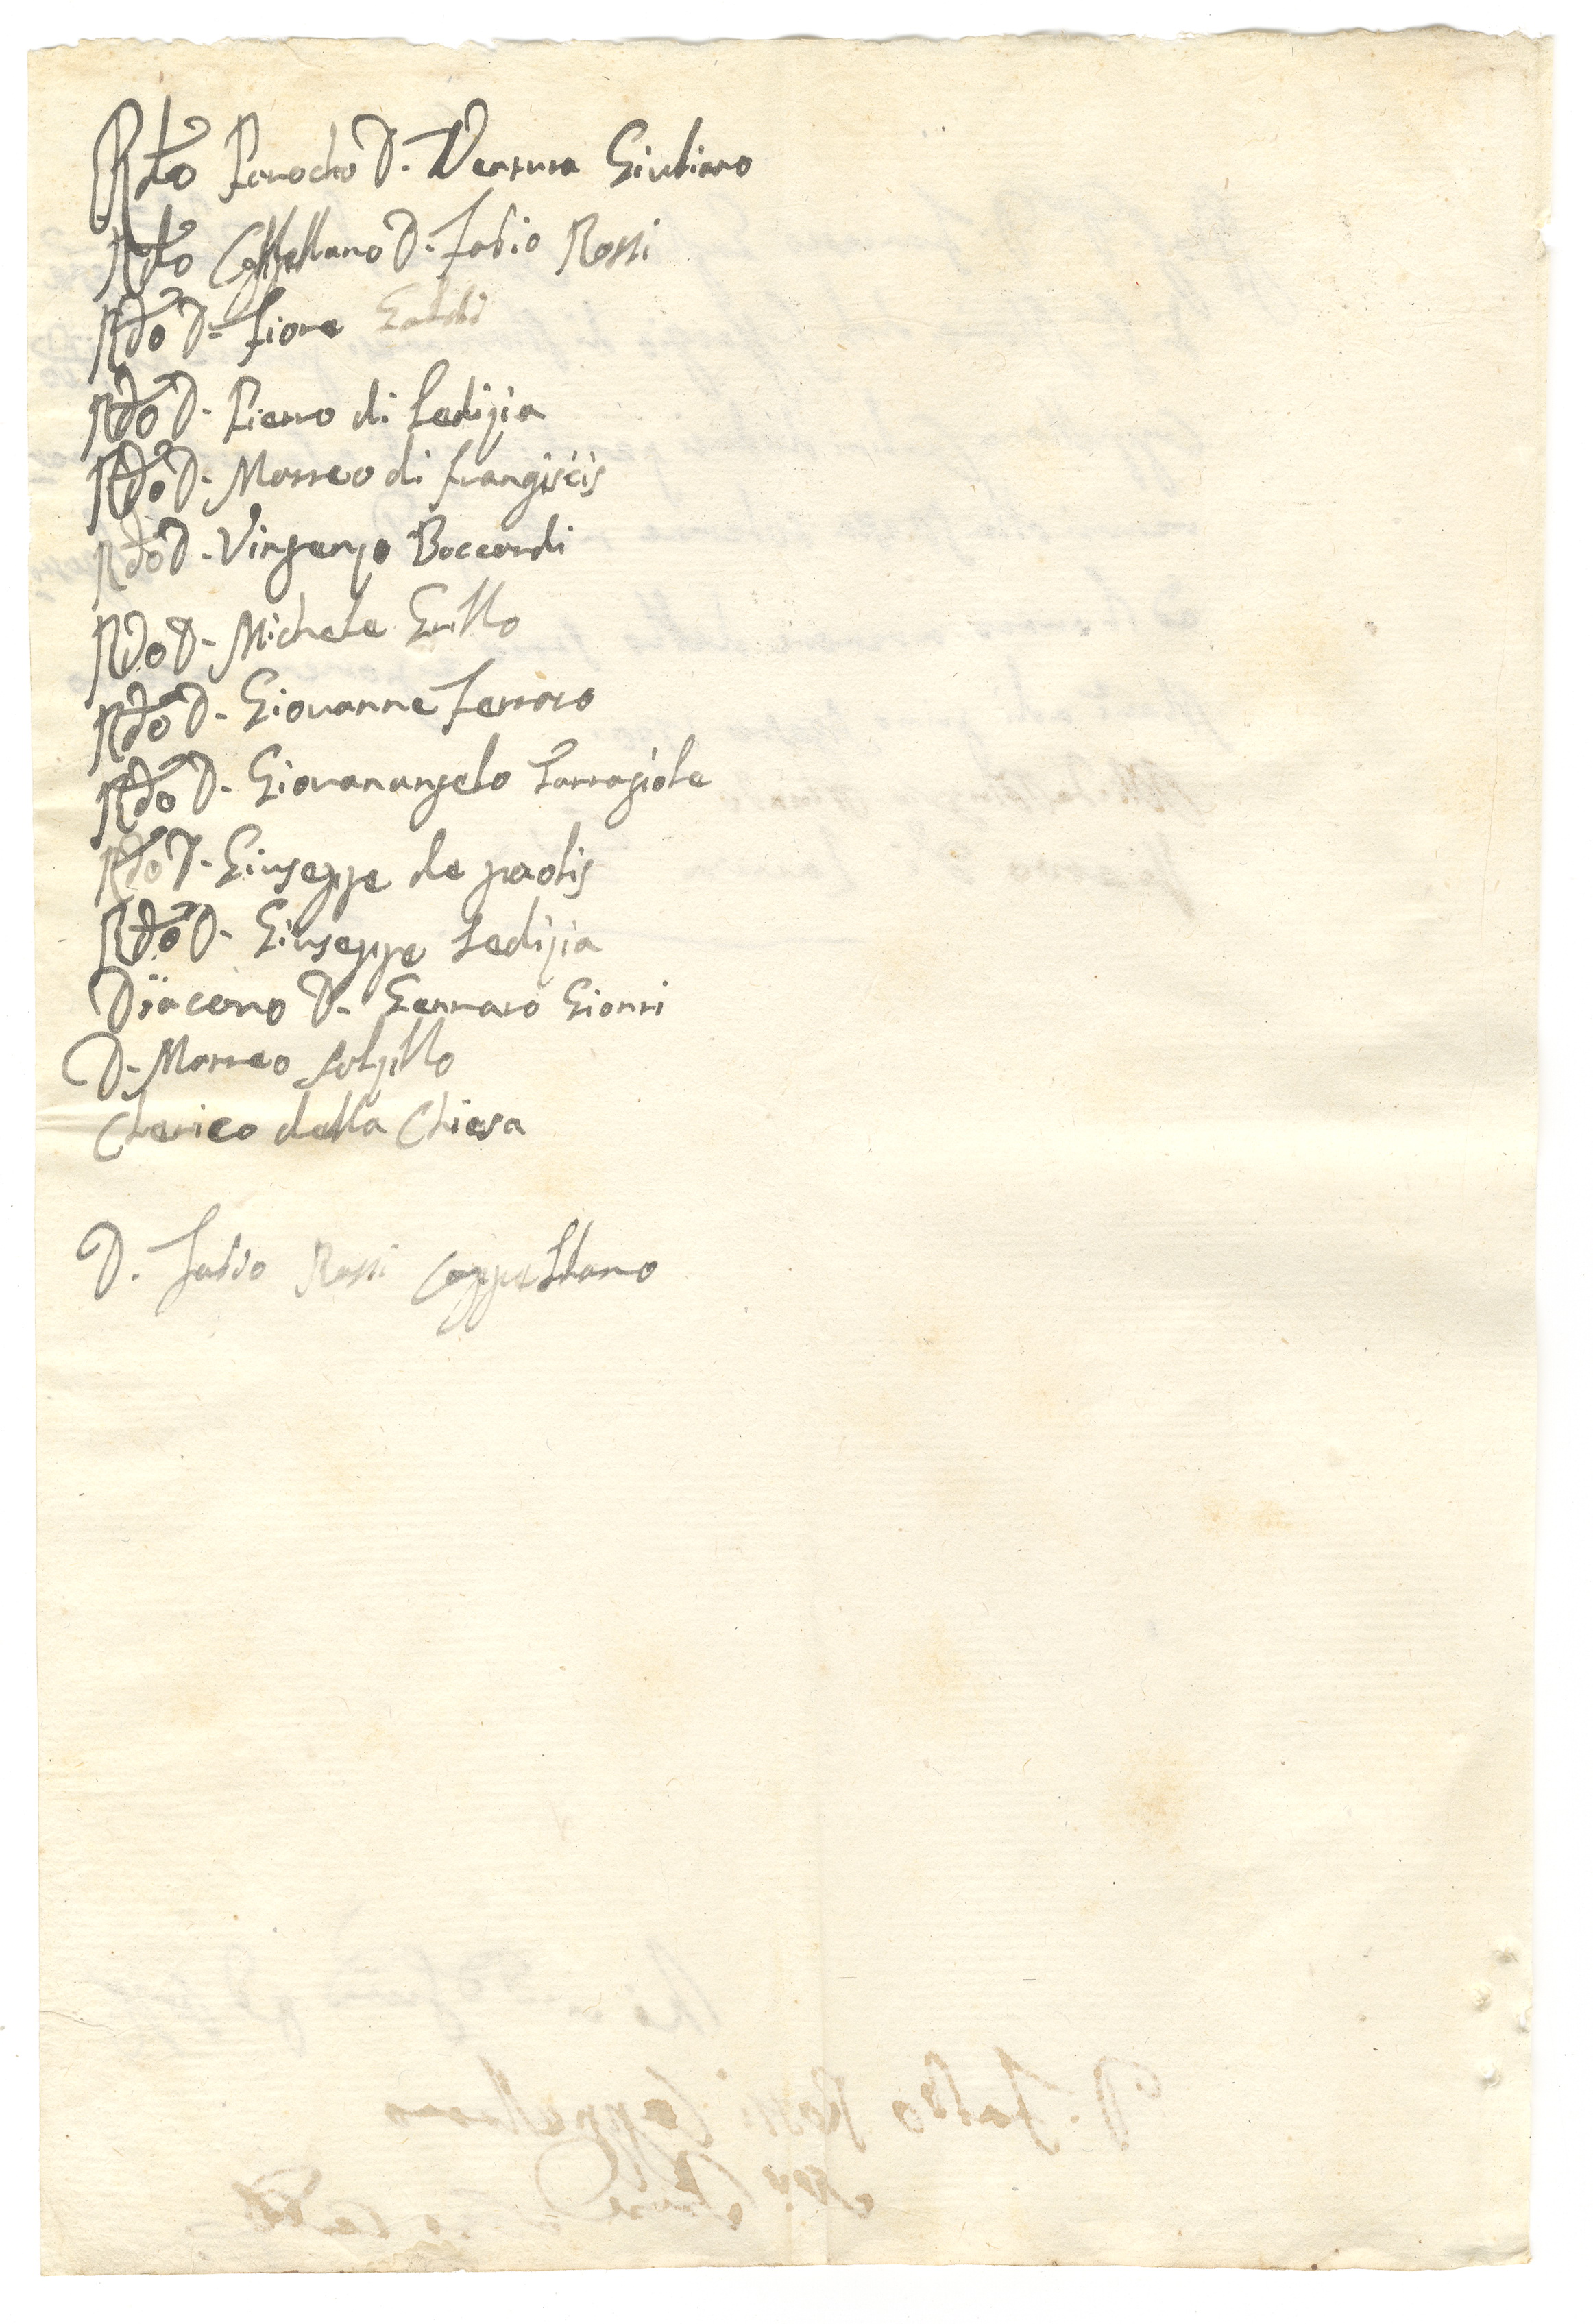 Rdo Parocho D. Ventura Giuliano
Rdo Cappellano D. Fabio Rossi
Rdo D. Fiore Galdi
Rdo D. Pietro di Letizia
Rdo D. Matteo di frangiscis
Rdo D. Vingenzo Boccardi
Rdo D. Michele Grillo
Rdo D. Giovanne Ferraro
Rdo D. Giovanangelo
Rdo D. Giuseppe de paolis
Rdo D. Giuseppe Letizia
Diacono D. Gennaro Gionti
D. Matteo
Clerico della Chiesa
D. Fabio Rossi Cappellano